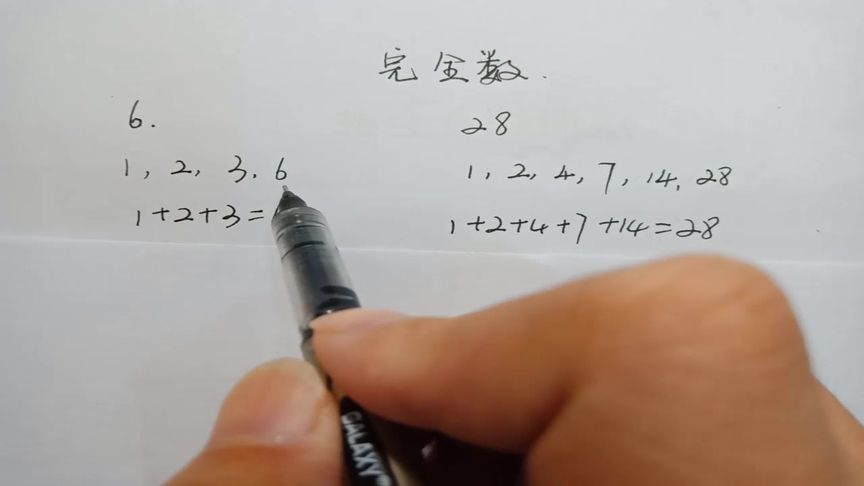 完全数.
6.
1, 2, 3, 6
1+2+3=
28
1, 2, 4, 7, 14, 28
1+2+4+7+14=28
GALAXY